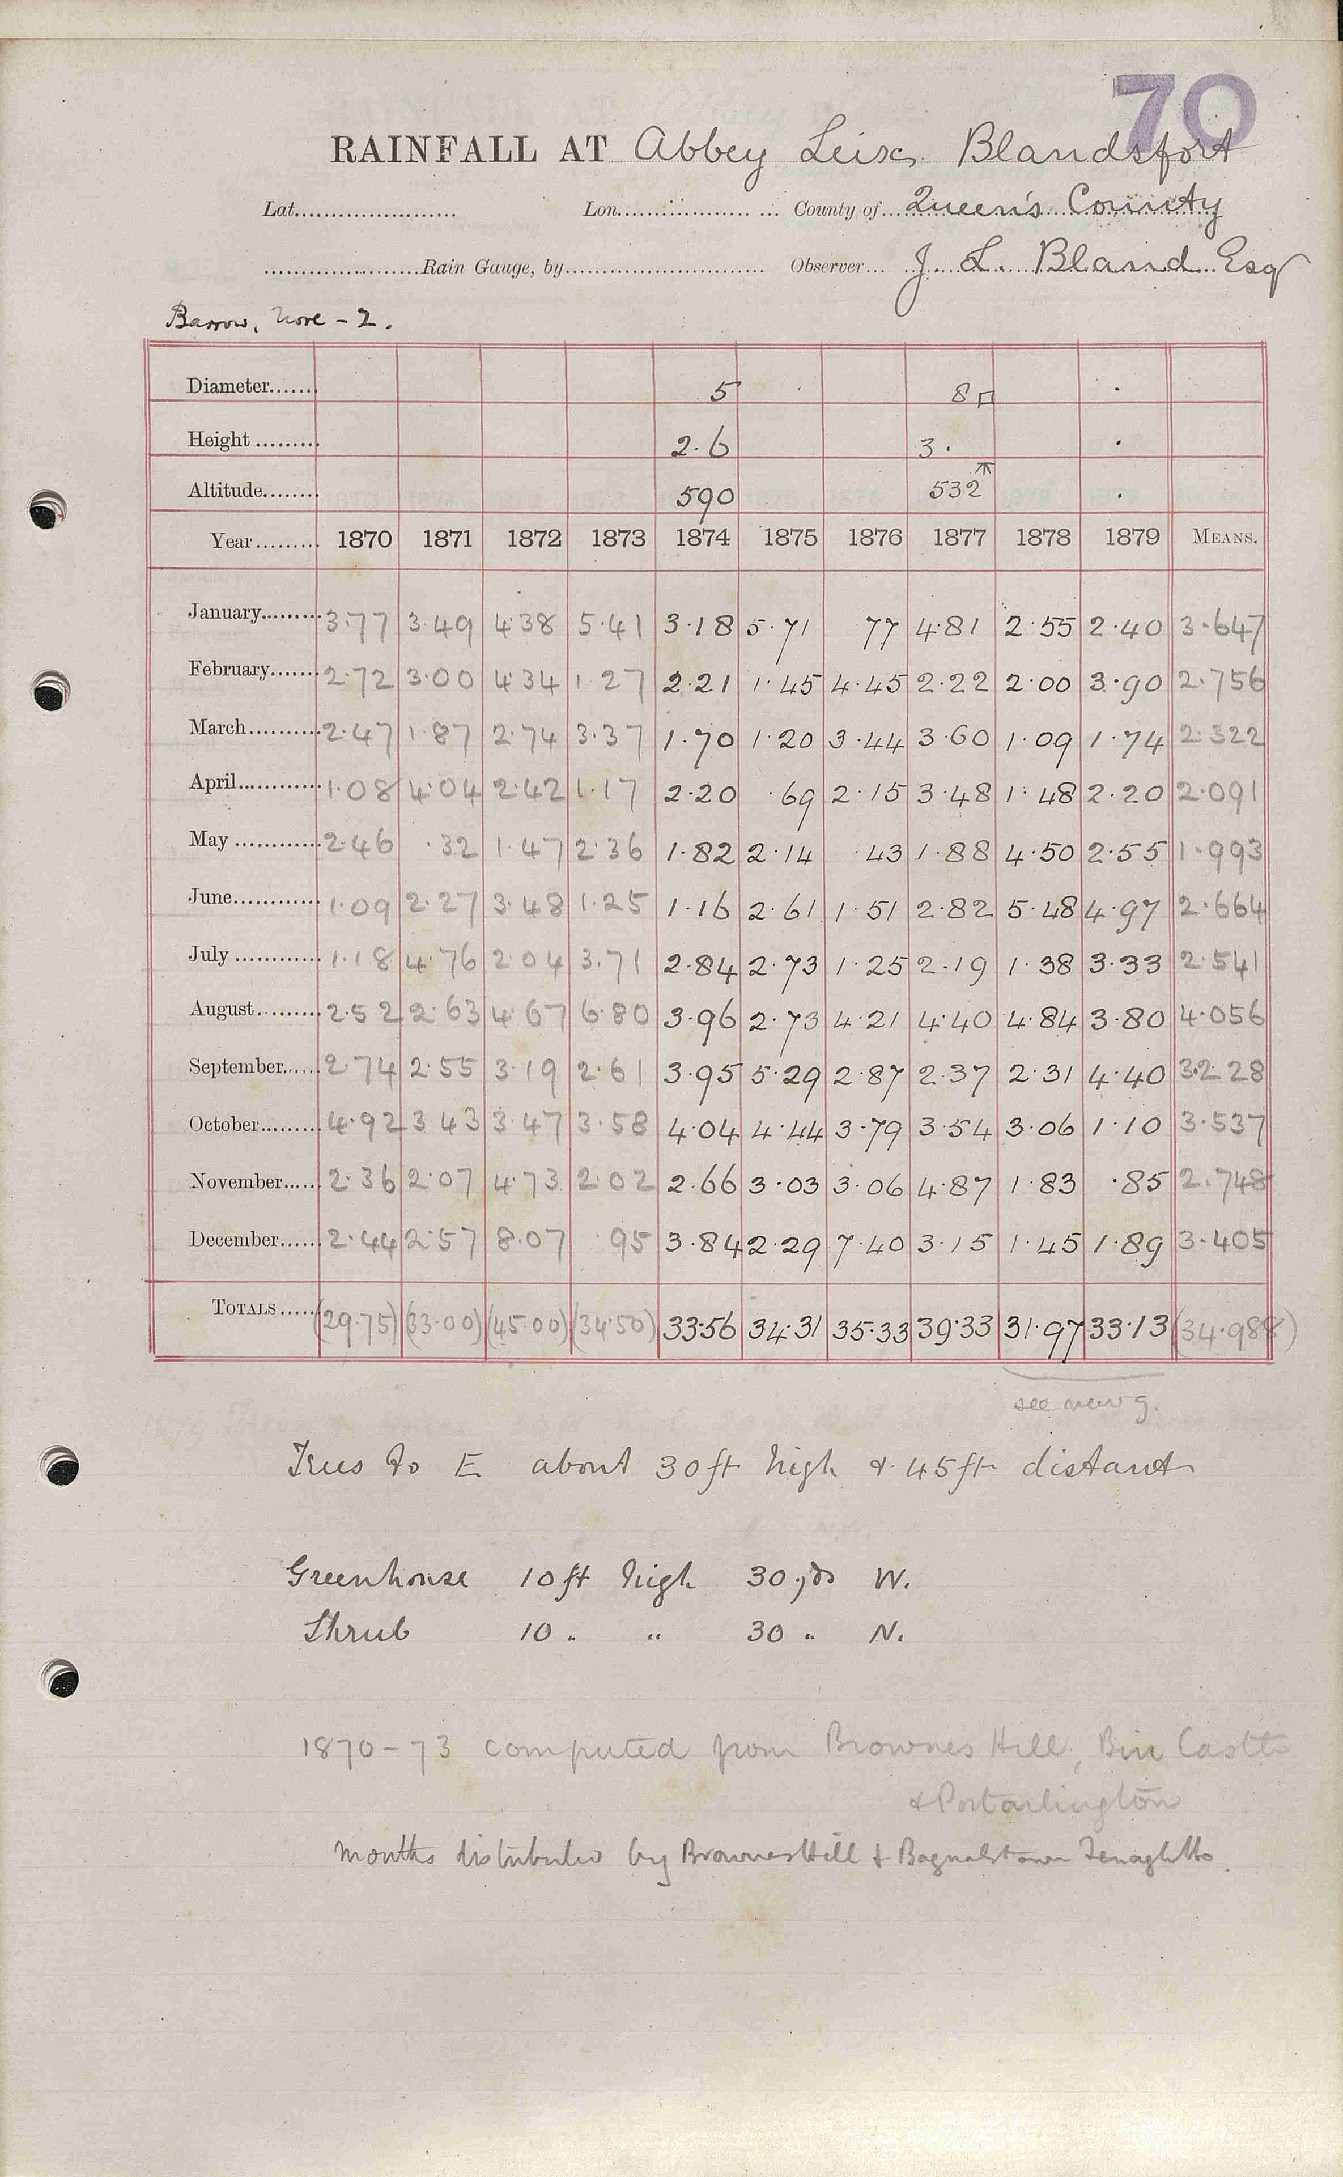 70
RAINFALL AT Abbey Leix, Blandsfort
Lat. Lon. County of Queen's County
Rain Gauge, by Observer J. L. Bland Esq
Barrow, Nore - 2.
Diameter 5 8□ ·
Height 2·6 3· ·
Altitude 590 532 ·
Year 1870 1871 1872 1873 1874 1875 1876 1877 1878 1879 MEANS.
January 3·77 3·49 4·38 5·41 3·18 5·71 77 4·81 2·55 2·40 3·647
February 2·72 3·00 4·34 1·27 2·21 1·45 4·45 2·22 2·00 3·90 2·756
March 2·47 1·87 2·74 3·37 1·70 1·20 3·44 3·60 1·09 1·74 2·322
April 1·08 4·04 2·42 1·17 2·20 ·69 2·15 3·48 1·48 2·20 2·091
May 2·46 ·32 1·47 2·36 1·82 2·14 43 1·88 4·50 2·55 1·993
June 1·09 2·27 3·48 1·25 1·16 2·61 1·51 2·82 5·48 4·97 2·664
July 1·18 4·76 2·04 3·71 2·84 2·73 1·25 2·19 1·38 3·33 2·541
August 2·52 2·63 4·67 6·80 3·96 2·73 4·21 4·40 4·84 3·80 4·056
September 2·74 2·55 3·19 2·61 3·95 5·29 2·87 2·37 2·31 4·40 3·228
October 4·92 3·43 3·47 3·58 4·04 4·44 3·79 3·54 3·06 1·10 3·537
November 2·36 2·07 4·73 2·02 2·66 3·03 3·06 4·87 1·83 ·85 2·748
December 2·44 2·57 8·07 95 3·84 2·29 7·40 3·15 1·45 1·89 3·405
TOTALS (29·75) (33·00) (45·00) (34·50) 33·56 34·31 35·33 39·33 31·97 33·13 (34·988)
see new g.
Trees to E about 30ft high & 45ft distant
Greenhouse 10ft high 30yds W.
Shrub 10 " " 30 " N.
1870-73 computed from Brownes Hill, Birr Castle
& Portarlington
Months distributed by Browneshill & Bagnalstown Fenagh Ho.